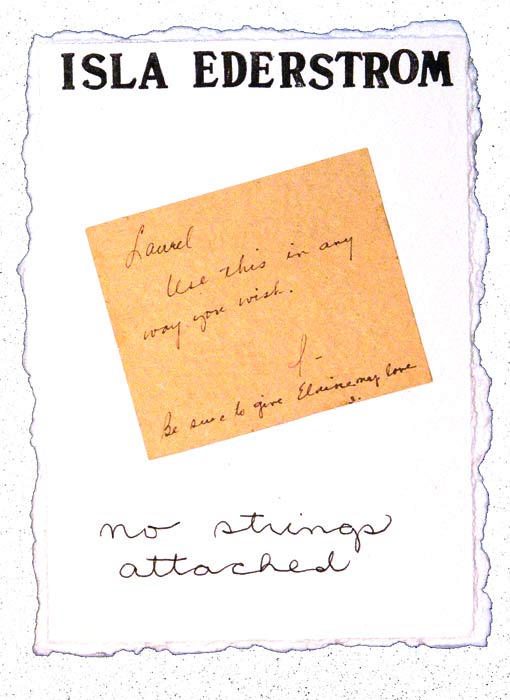 ISLA EDERSTROM
Laurel
Use this in any
way you wish.
I-
Be sure to give Elaine my love
I.
no strings
attached